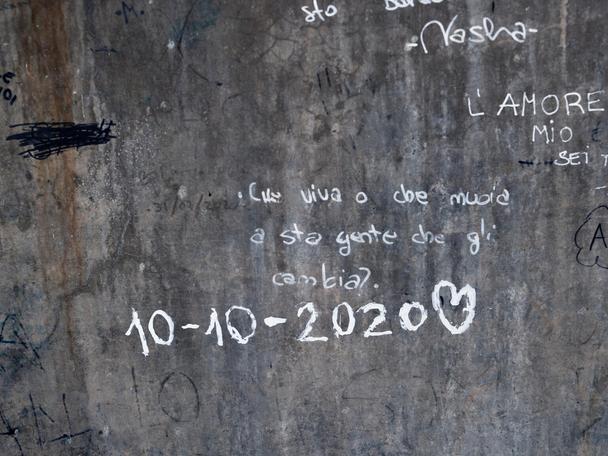 sto
-Nasha-
L'AMORE
MIO
SEI
.Che viva o che muoia
a sta gente che gli
cambia?.
10-10-2020